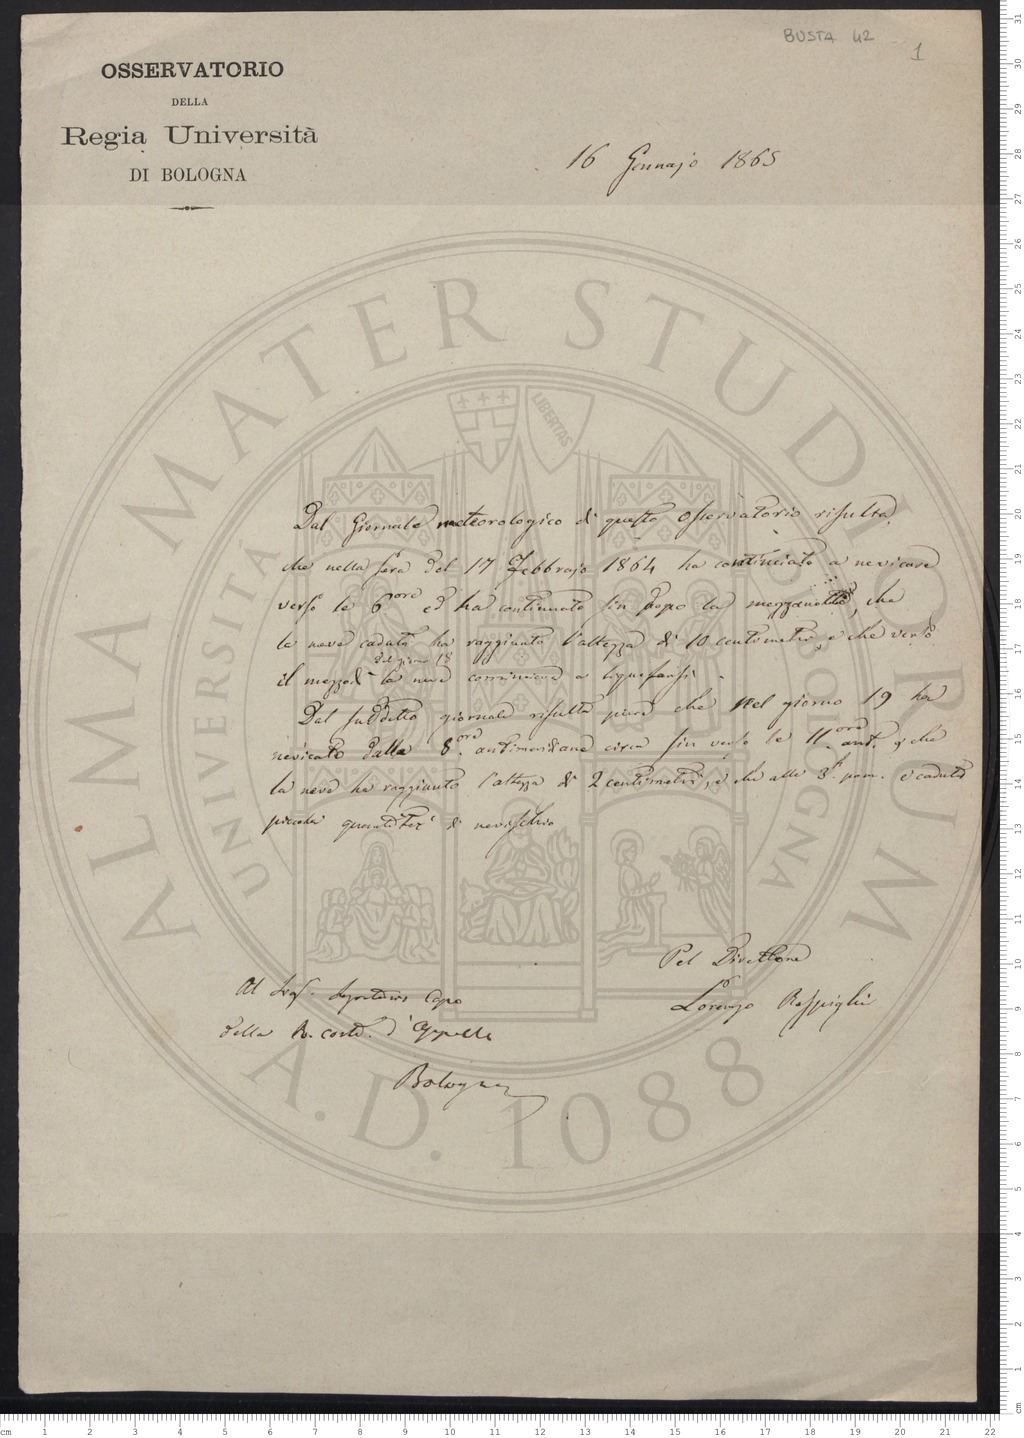 BUSTA 42
1
OSSERVATORIO
DELLA
Regia Università
DI BOLOGNA
16 Gennajo 1865
Dal Giornale meteorologico di questo Osservatorio risulta,
che nella sera del 17 Febbrajo 1864 ha cominciato a nevicare
verso le 6 ore ed ha continuato sin dopo la mezzanotte, che
la neve caduta ha raggiunto l'altezza di 10 centimetri, e che verso
del giorno 18
il mezzodì la neve cominciava a liquefarsi.
Dal suddetto giornale risulta pure che nel giorno 19 ha
nevicato dalle 8 ore antimeridiane circa sin verso le 11 ore ant. e che
la neve ha raggiunto l'altezza di 2 centimetri, e che alle 3 h pom. è caduta
piccola quantità di nevischio
Pel Direttore
Lorenzo Respighi
Al Segretario Capo
della R. Corte d'Appello
Bologna
ALMA MATER STUDIORUM
UNIVERSITÀ DI BOLOGNA
LIBERTAS
A.D. 1088